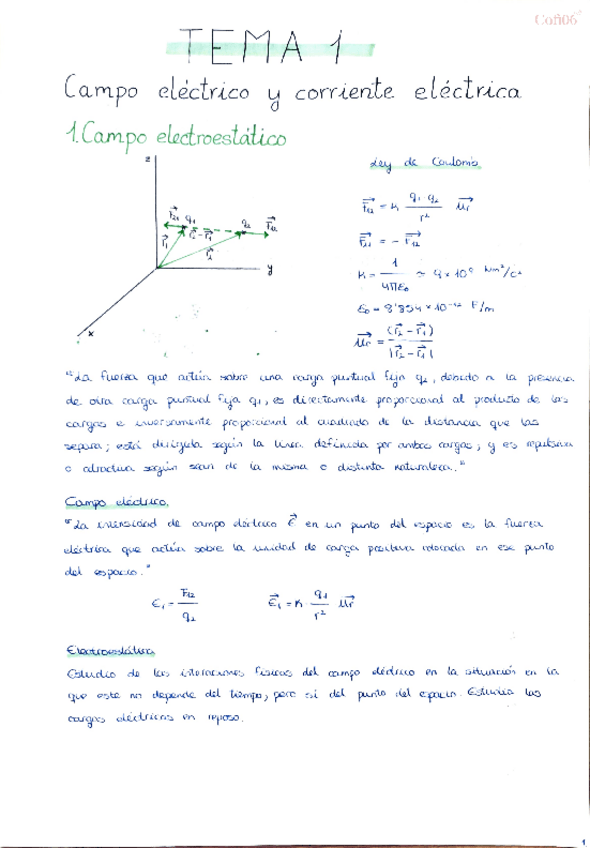 Coñ06
TEMA 1
Campo eléctrico y corriente eléctrica
1. Campo electroestático
Ley de Coulomb
z
F₂₁ q₁ q₂ F₁₂
r₂-r₁
r₁ r₂
y
x
F₁₂ = K q₁ q₂ / r² ur
F₂₁ = - F₁₂
K = 1 / 4πε₀ ≈ 9×10⁹ Nm²/C²
ε₀ = 8'854×10⁻¹² F/m
ur = (r₂ - r₁) / |r₂ - r₁|
"La fuerza que actúa sobre una carga puntual fija q₂, debido a la presencia
de otra carga puntual fija q₁, es directamente proporcional al producto de las
cargas e inversamente proporcional al cuadrado de la distancia que las
separa; está dirigida según la línea definida por ambas cargas; y es repulsiva
o atractiva según sean de la misma o distinta naturaleza."
Campo eléctrico.
"La intensidad de campo eléctrico E en un punto del espacio es la fuerza
eléctrica que actúa sobre la unidad de carga positiva colocada en ese punto
del espacio."
E₁ = F₁₂ / q₂ E₁ = K q₁ / r² ur
Electroestática
Estudio de las interacciones físicas del campo eléctrico en la situación en la
que este no depende del tiempo, pero sí del punto del espacio. Estudia las
cargas eléctricas en reposo.
1